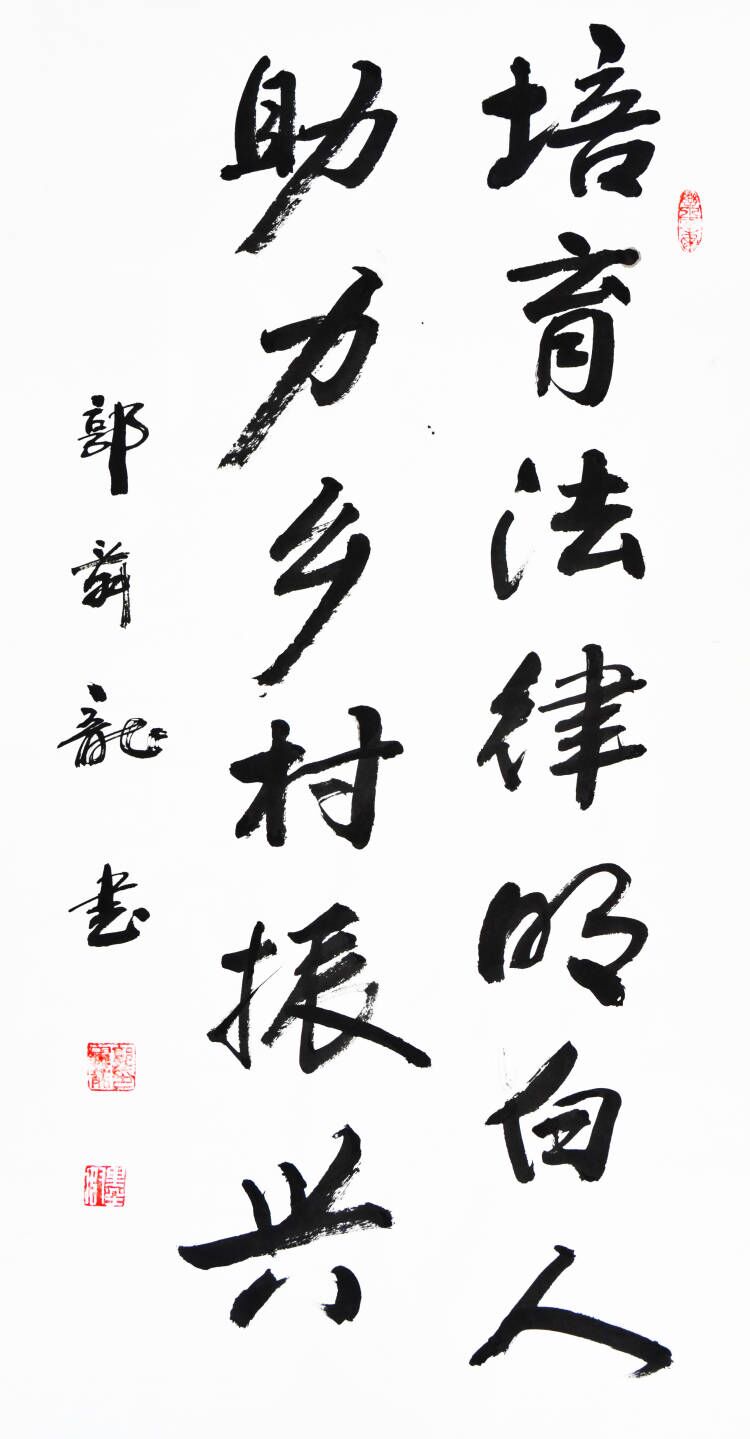 培育法律明白人
助力乡村振兴
郭舜龍书